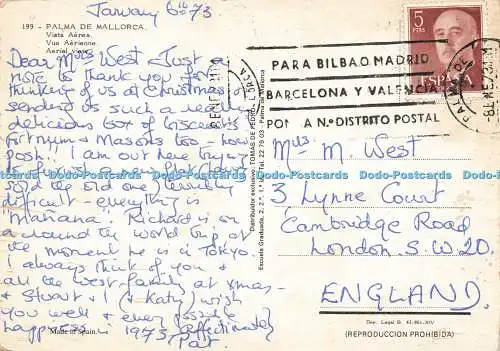 January 6th 73
199 - PALMA DE MALLORCA.
Vista Aérea.
Vue Aérienne.
Aerial view.
Dear Mrs West Just a
note to thank you for
thinking of us at Christmas &
sending us such a really
delicious box of biscuits
Fortnum & Masons too - how
posh! I am out here trying
to
sold the old one) terribly
difficult everything is
"Mañana". Richard is on
a around the world trip at
the moment he is in Tokyo.
I always think of you &
all the West family at xmas
& Stuart & I (& Katy) wish
you well & every possible
happiness 1973 affectionately
Pat.
Made in Spain.
Distribuidor exclusivo: TOMAS DE PEDRO
Escuela Graduada, 2, 2.º, 1.ª Tel. 22 79 03 - Palma de Mallorca
5
PTAS
ESPAÑA
PARA BILBAO, MADRID
BARCELONA Y VALENCIA
PONGA Nº DISTRITO POSTAL
Mrs M. West
3 Lynne Court
Cambridge Road
London. S.W. 20.
ENGLAND
Dep. Legal B.
(REPRODUCCION PROHIBIDA)
Dodo-Postcards